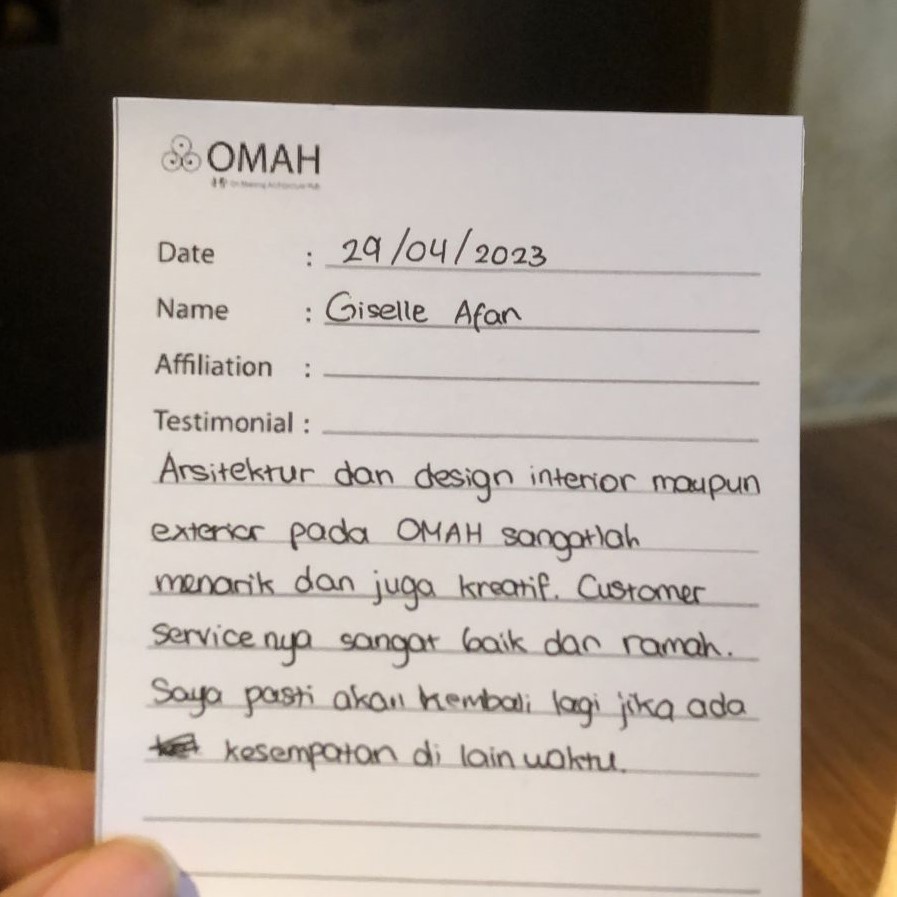 OMAH
On Making Architecture Hub
Date : 29/04/2023
Name : Giselle Afan
Affiliation :
Testimonial :
Arsitektur dan design interior maupun
exterior pada OMAH sangatlah
menarik dan juga kreatif. Customer
service nya sangat baik dan ramah.
Saya pasti akan kembali lagi jika ada
kesempatan di lain waktu.